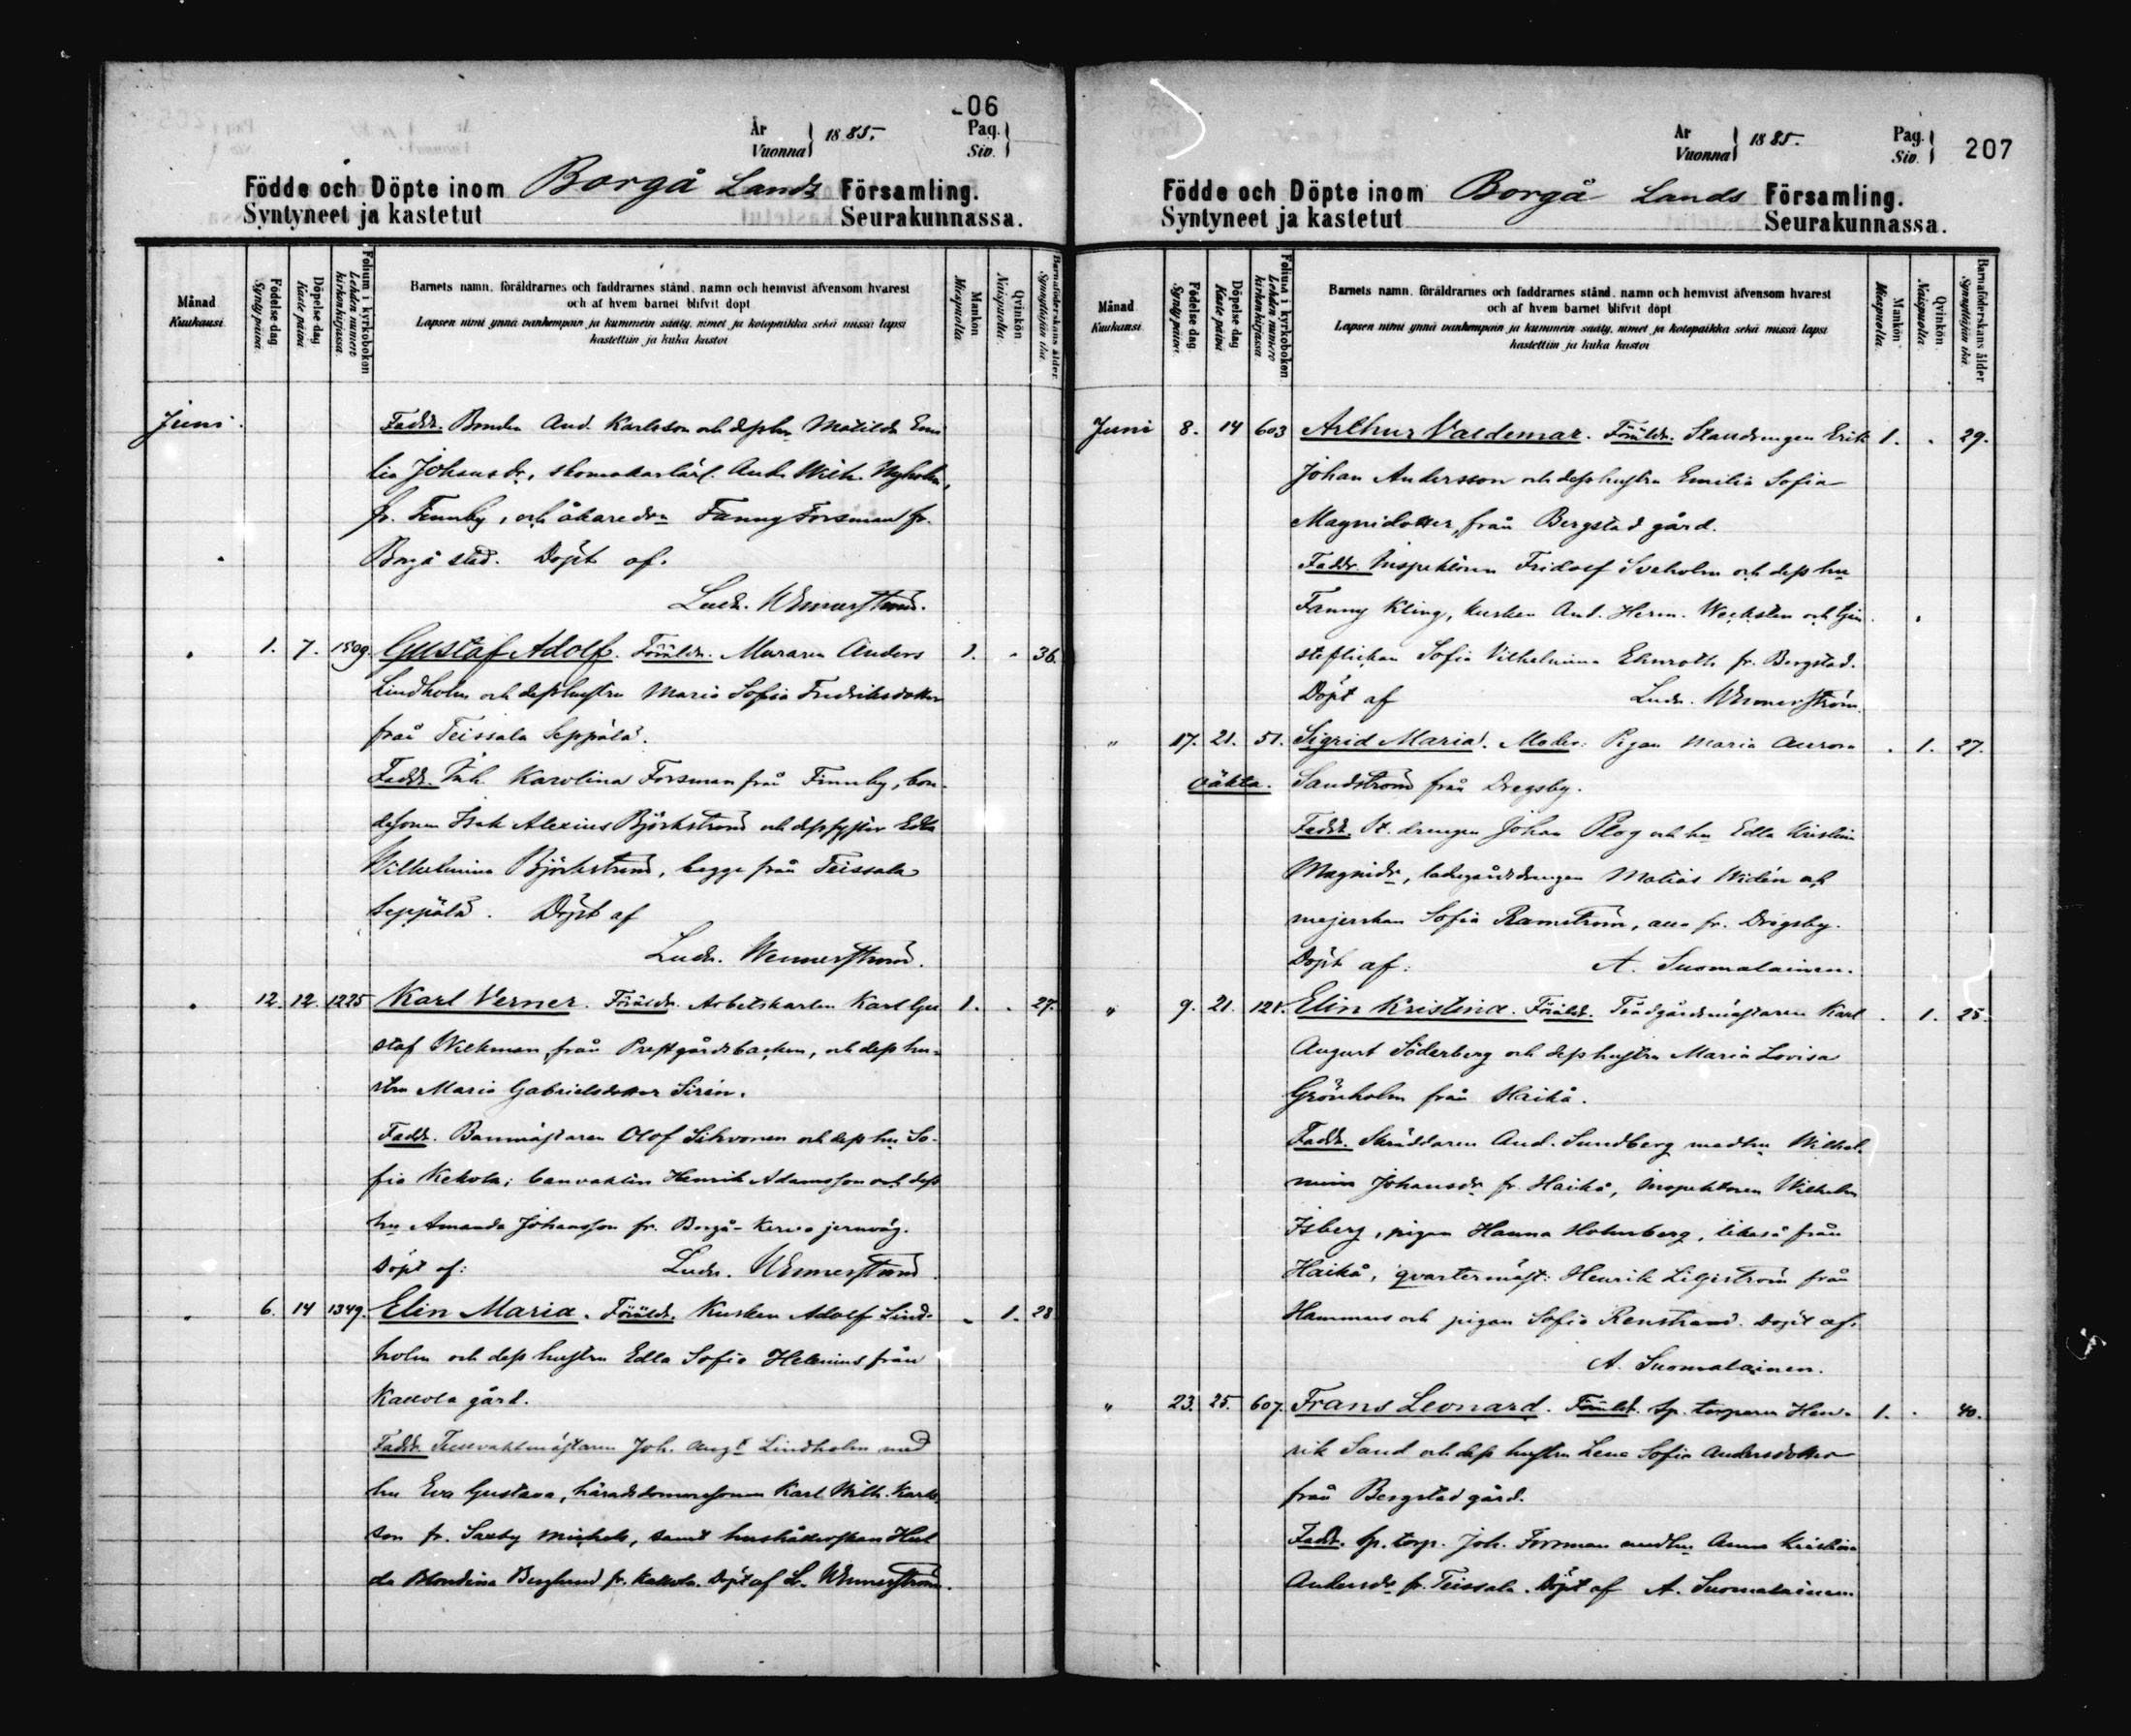 206
År
Vuonna
1885.
Pag.
Siv.
Födde och Döpte inom Borgå Lands Församling.
Syntyneet ja kastetut Seurakunnassa.
Månad
Kuukausi
Födelse dag.
Synty päivä.
Döpelse dag
Kaste päivä
Folium i kyrkoboken
Lehden numero
kirkonkirjassa.
Barnets namn, föräldrarnes och faddrarnes stånd, namn och hemvist äfvensom hvarest
och af hvem barnet blifvit döpt
Lapsen nimi ynnä vanhempain ja kummein sääty, nimet ja kotopaikka sekä missä lapsi
kastettiin ja kuka kastoi
Mankön
Miespuolta.
Qvinkön
Naispuolta.
Barnaföderskans ålder
Synnyttäjän ikä.
Juni. Faddr. Bonden And. Karlsson och dess hu Matilda Emi
lia Johansdr, skomakarlärl. And. Wilh. Nyholm,
fr. Finnby, och åkaredrn Fanny Forsman fr.
Borgå stad. Döpt af.
Ludv. Wennerström.
1. 7. 1509. Gustaf Adolf. Föräldr. Muraren Anders 1. 36.
Lindholm och dess hustru Maria Sofia Fredriksdotter
från Teissala Seppälä.
Faddr. Inh. Karolina Forsman från Finnby, bon-
desonen Isak Alexius Björkström och dess syster Edla
Wilhelmina Björkström, begge från Teissala
Seppälä. Döpt af
Ludv. Wennerström.
12. 12. 1225 Karl Verner. Föräldr. Arbetskarlen Karl Gu 1. 27.
staf Wickman från Prestgårdsbacken, och dess hu-
stru Maria Gabrielsdotter Sirén.
Faddr. Banmästaren Olof Sihvonen och dess hu So-
fia Kekola; banvakten Henrik Adamsson och dess
hu Amanda Johansson fr. Borgå-Kervo jernväg.
Döpt af: Ludv. Wennerström.
6. 14 1349. Elin Maria. Föräldr. Kusken Adolf Lind- 1. 28
holm och dess hustru Edla Sofia Helenius från
Kallola gård.
Faddr. Joh. Augt Lindholm med
hu Eva Gustava, häradsdomaresonen Karl Wilh. Karls
son fr. Saxby Mickels, samt hushållerskan Hul
da Blondina Berglund fr. Kallola. Döpt af L. Wennerström.
År
Vuonna
1885.
Pag.
Siv.
207
Födde och Döpte inom Borgå Lands Församling.
Syntyneet ja kastetut Seurakunnassa.
Månad
Kuukausi
Födelse dag.
Synty päivä.
Döpelse dag
Kaste päivä
Folium i kyrkoboken
Lehden numero
kirkonkirjassa
Barnets namn, föräldrarnes och faddrarnes stånd, namn och hemvist äfvensom hvarest
och af hvem barnet blifvit döpt
Lapsen nimi ynnä vanhempain ja kummein sääty, nimet ja kotopaikka sekä missä lapsi
kastettiin ja kuka kastoi
Mankön
Miespuolta.
Qvinkön
Naispuolta.
Barnaföderskans ålder
Synnyttäjän ikä.
Juni 8. 14 603 Arthur Valdemar. Föräldr. Statdrengen Erik 1. 29.
Johan Andersson och dess hustru Emilia Sofia
Magnidotter, från Bergstad gård.
Faddr. Inspektoren Fridolf Sveholm och dess hu
Fanny Kling, kusken And. Herm. Weckstén och tjen
steflickan Sofia Vilhelmina Ehnroth fr. Bergstad.
Döpt af Ludv. Wennerström.
" 17. 21. 51. Sigrid Maria. Moder: Pigan Maria Aurora 1. 27.
oäkta. Sandström från Drägsby.
Faddr. St. drengen Johan Plog och hu Edla Kristina
Magnidr, ladugårdsdrengen Matias Widén och
mejerskan Sofia Ramström, alla fr. Drägsby.
Döpt af: A. Suomalainen.
" 9. 21. 121. Elin Kristina. Föräldr. Trädgårdsmästaren Karl 1. 25.
August Söderberg och dess hustru Maria Lovisa
Grönholm från Haikå.
Faddr. Skräddaren And. Sundberg med hu Wilhel-
mina Johansdr fr. Haikå, Inspektoren Wilhelm
Isberg, pigan Hanna Holmberg, likaså från
Haikå, qvartermäst: Henrik Liljeström från
Hammars och pigan Sofia Renstrand. Döpt af.
A. Suomalainen.
" 23. 25. 607. Frans Leonard. Föräldr. Sp. torparen Hen- 1. 40.
rik Sand och dess hustru Lena Sofia Andersdotter
från Bergstad gård.
Faddr. Sp. torp. Joh. Forsman med hu Anna Kristina
Andersdr fr. Teissala. Döpt af A. Suomalainen